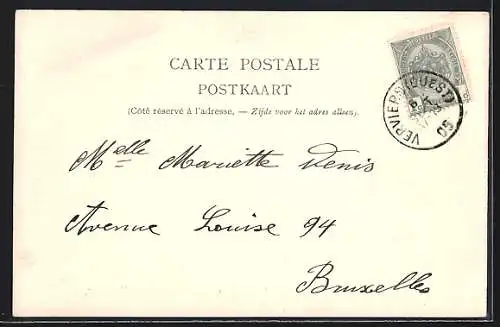 CARTE POSTALE
POSTKAART
(Côté réservé à l'adresse, — Zijde voor het adres alleen).
VERVIERS (OUEST)
05
Melle Mariette Denis
Avenue Louise 94
Bruxelles